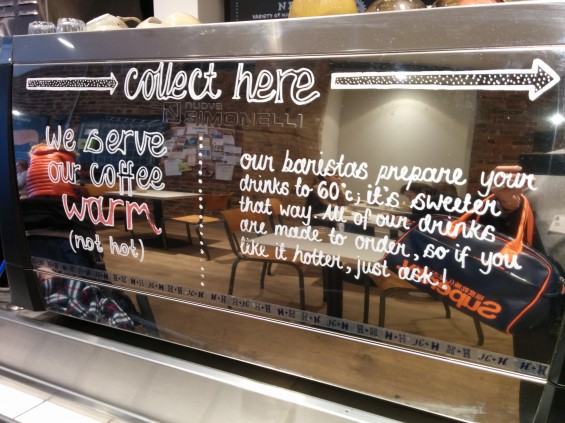 collect here
nuova
SIMONELLI
We serve
our coffee
warm
(not hot)
our baristas prepare your
drinks to 60°c; it's sweeter
that way. All of our drinks
are made to order, so if you
like it hotter, just ask!
Superdry